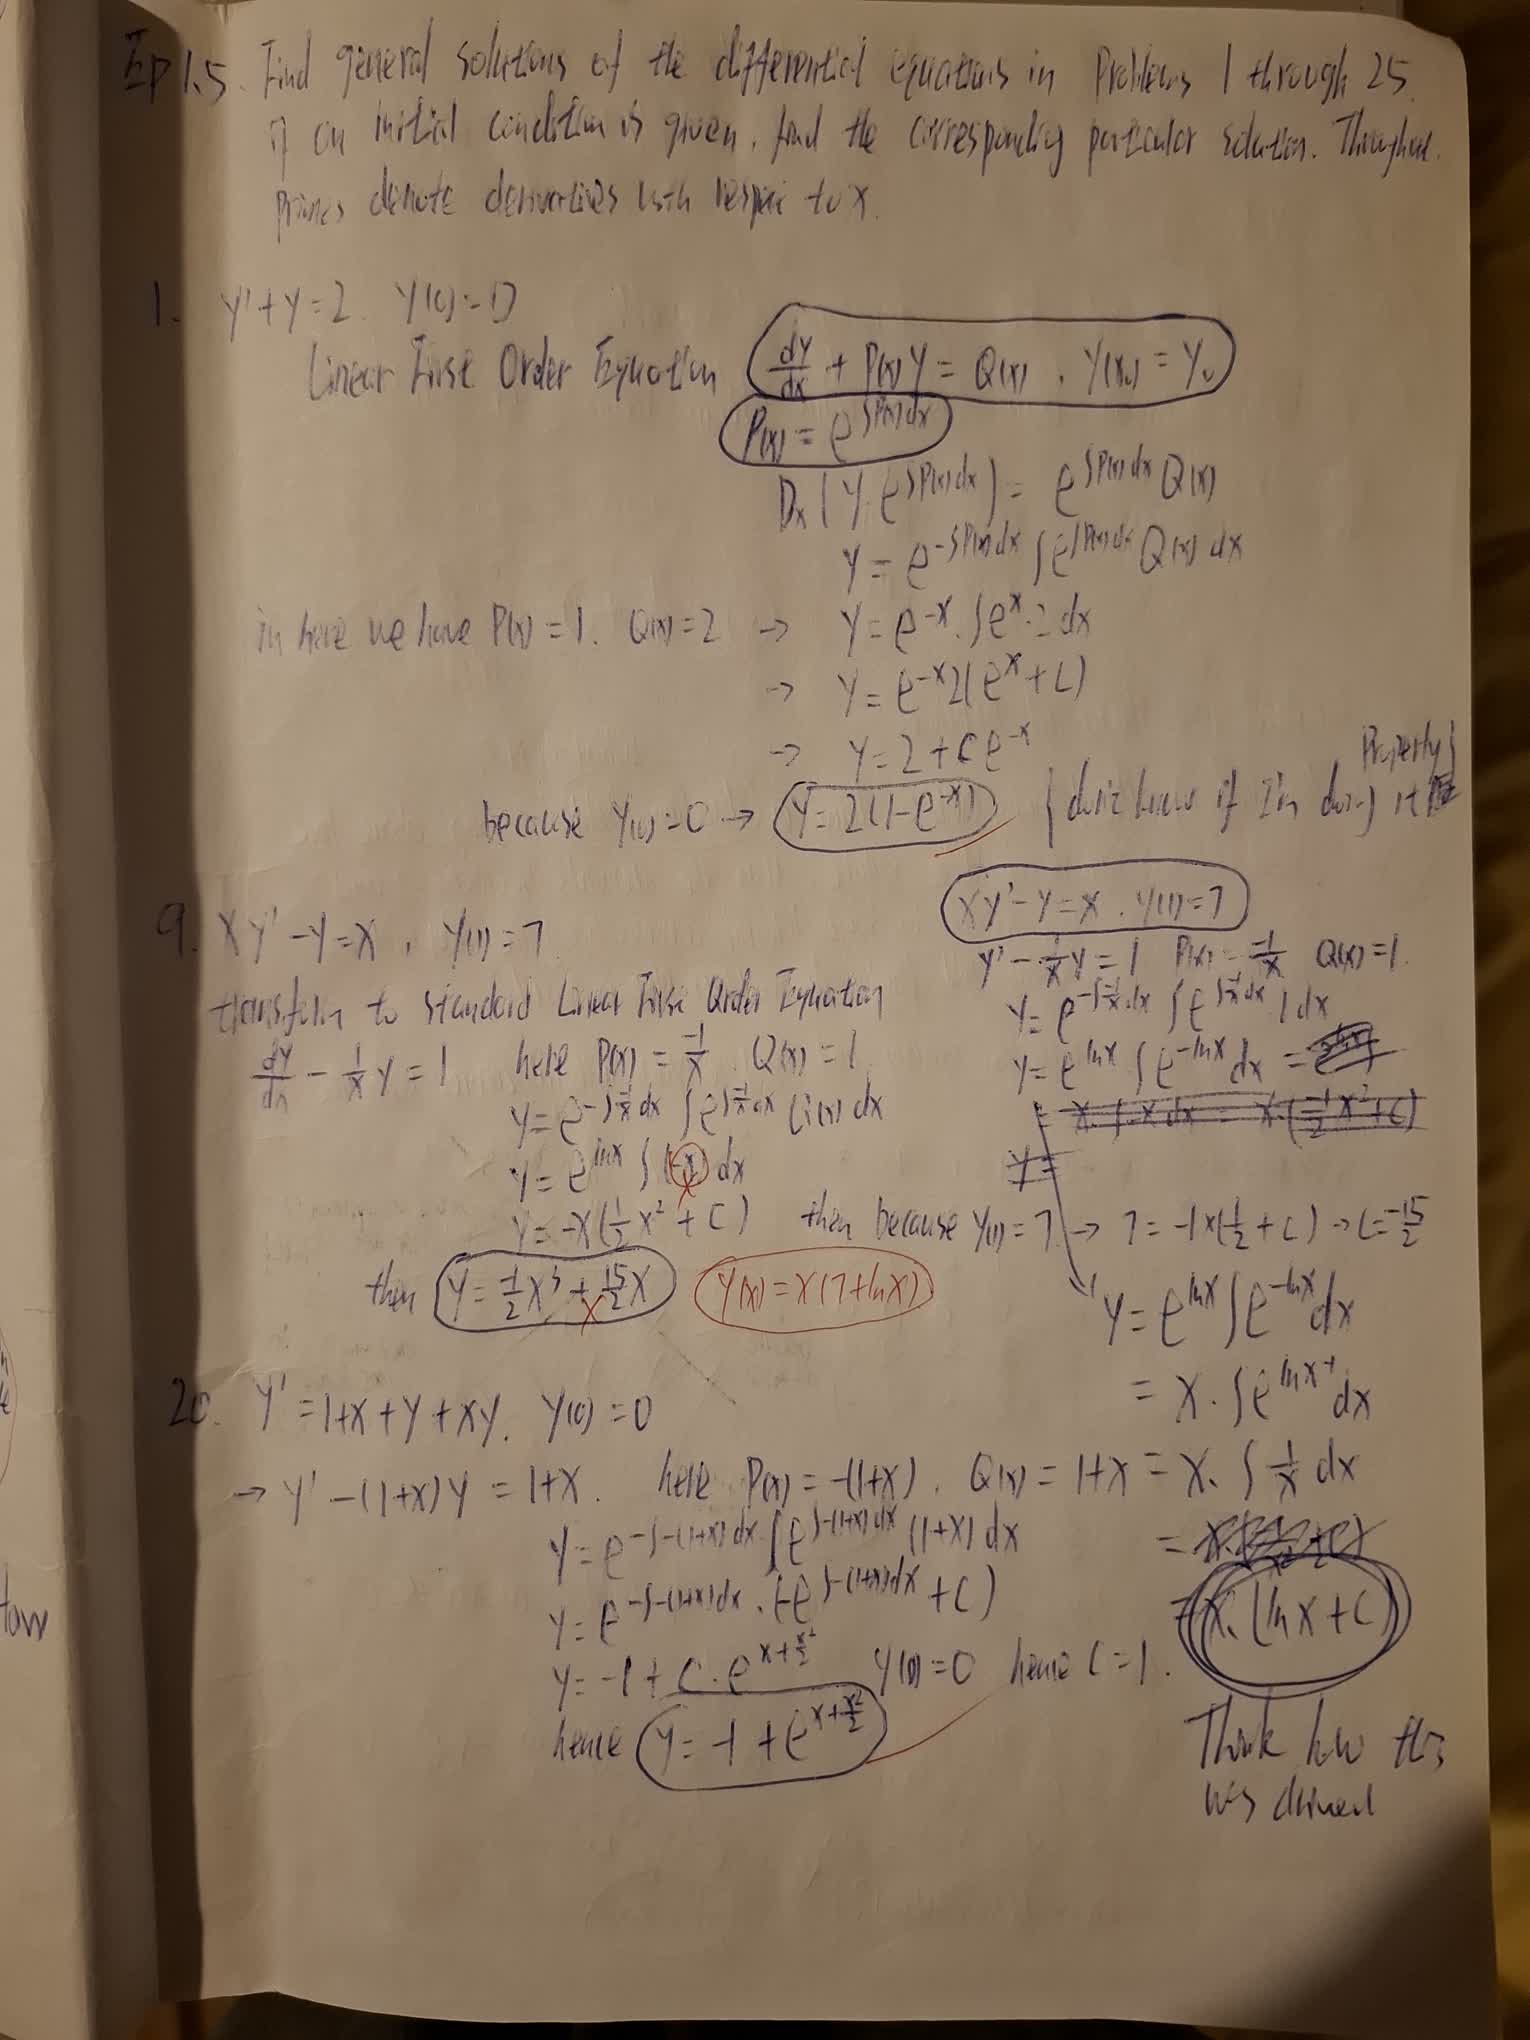 EP 1.5. Find general solutions of the differential equations in Problems 1 through 25.
if an initial condition is given, find the corresponding particular solution. Throughout.
primes denote derivatives with respect to x.
1. y'+y=2. y(0)=0
Linear First Order Equation dy/dx + P(x)y = Q(x), y(x₀) = y₀
P(x) = e^∫P(x)dx
Dx(y·e^∫P(x)dx) = e^∫P(x)dx Q(x)
y = e^-∫P(x)dx ∫e^∫P(x)dx Q(x) dx
in here we have P(x)=1. Q(x)=2 → y = e^-x·∫e^x·2 dx
→ y = e^-x 2(e^x + C)
→ y = 2 + C e^-x
because y(0)=0 → y = 2(1-e^-x) { don't know if I'm doing it Properly }
9. xy'-y=x, y(1)=7
transform to standard Linear First Order Equation
dy/dx - 1/x y = 1 here P(x) = -1/x Q(x) = 1
y = e^-∫-1/x dx ∫e^∫-1/x dx Q(x) dx
y = e^lnx ∫(-x) dx
y = -x(1/2 x² + C) then because y(1)=7 → 7 = -1×(1/2 + C) → C = -15/2
then y = -1/2 x³ + 15/2 x y(x) = x(7+lnx)
xy'-y=x, y(1)=7
y' - 1/x y = 1 P(x) = -1/x Q(x) = 1.
y = e^-∫-1/x dx ∫e^∫-1/x dx 1 dx
y = e^lnx ∫e^-lnx dx =
= x·∫-x dx = x·(-1/2 x² + C)
y =
y = e^lnx ∫e^-lnx dx
= x·∫e^lnx^-1 dx
= x·∫1/x dx
= x·(lnx + C)
Think how this was derived
20. y' = 1+x+y+xy. y(0)=0
→ y' -(1+x)y = 1+x. here P(x) = -(1+x), Q(x) = 1+x
y = e^-∫-(1+x)dx ∫e^∫-(1+x)dx (1+x) dx
y = e^-∫-(1+x)dx·(-e^∫-(1+x)dx + C)
y = -1 + C·e^x+x²/2 y(0)=0 hence C=1.
hence y = -1 + e^x+x²/2
how